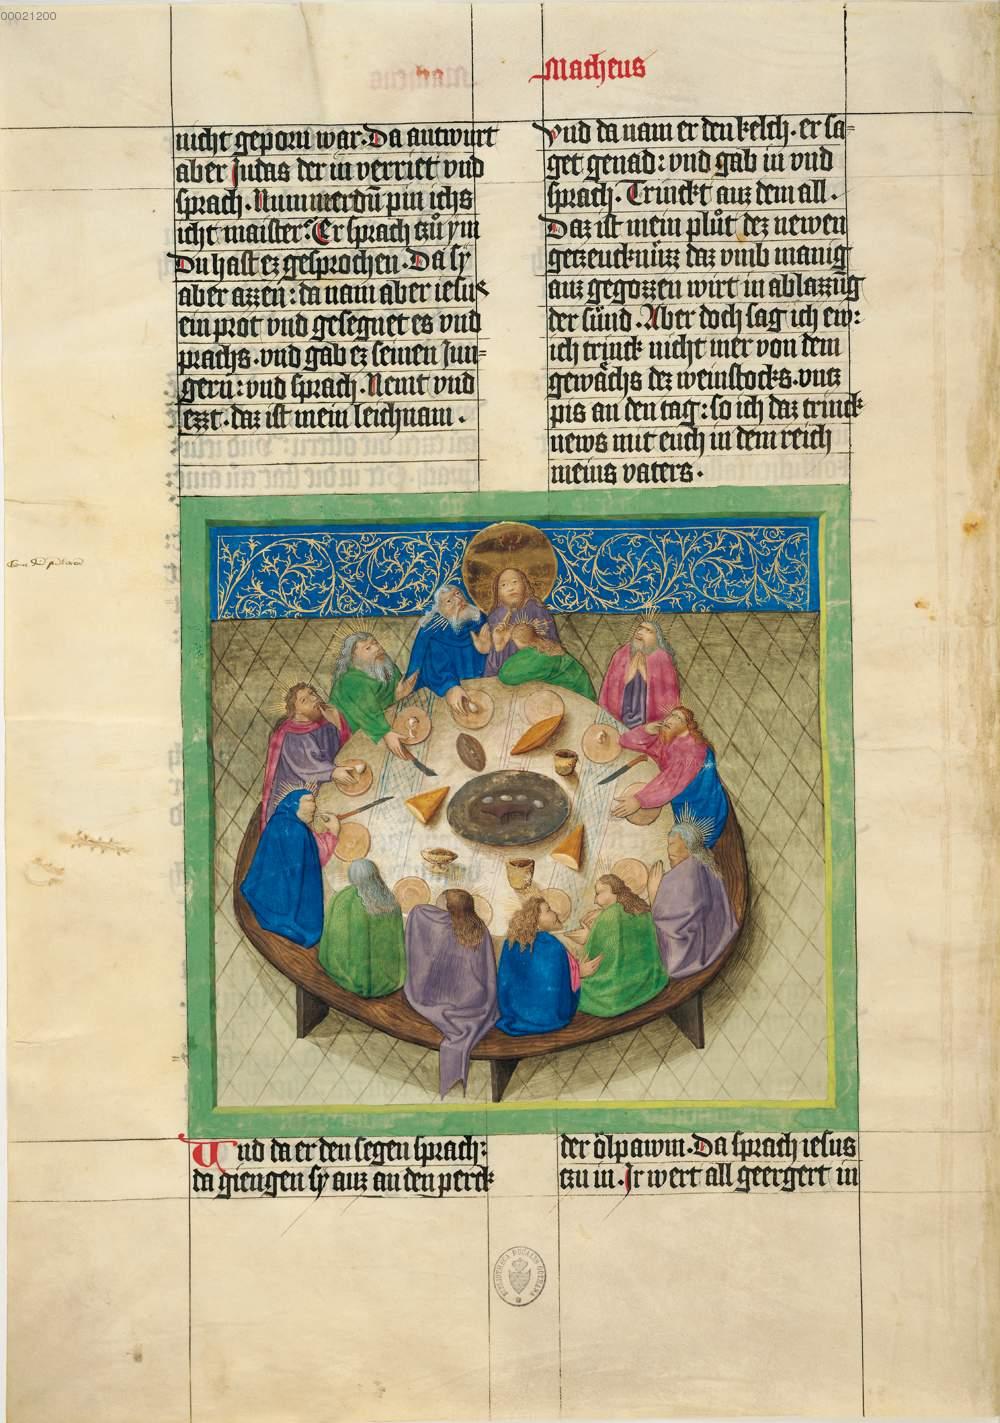 00021200
Matheus
nicht geporn war. Da antwurt
aber Judas der in verriet vnd
sprach. Nummerdu pin ichs
icht maister? Er sprach czů ym
Du hast ez gesprochen. Da sy
aber azzen: da nam aber iesus
ein prot vnd gesegnet es vnd
prachs. vnd gab ez seinen Jun=
gern: vnd sprach. Nemt vnd
ezzt. daz ist mein leichnam.
vnd da nam er den kelch. er sa=
get genad: vnd gab in vnd
sprach. Trinckt auz dem all.
Daz ist mein plůt dez newen
gezeucknüzz daz vmb manig
auz gegozzen wirt in ablazzūg
der sünd. Aber doch sag ich ew:
ich trinck nicht mer von dem
gewächs dez weinstocks. vntz
pis an den tag: so ich daz trinck
news mit euch in dem reich
meins vaters.
Und da er den segen sprach:
da giengen sy auz an den perck
der ölpawm. Da sprach iesus
czu in. Jr wert all geergert in